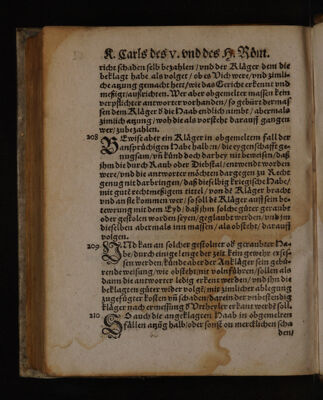 K. Carls des V. vnd des H. Röm.
richt schaden selb bezahlen / vnd der Kläger dem die
beklagt habe als volget / ob es Vich were / vnd zimli-
che atzung gemacht hett / wie das Gericht erkent vnd
meßigt / außrichten. Wer aber obgemelter massen kein
verpflichter antworter vorhanden / so gebürt dermas
sen dem Kläger die Haab endlich nimbt / abermals
zimlich atzung / wo die als vorsteht darauff gangen
wer / zubezahlen.
208 BEwise aber ein Kläger in obgemeltem fall der
ansprüchigen Habe halben / die eygenschafft ge-
nugsam / vn künd doch darbey nit beweisen / daß
ihm die durch Raub oder Diebstal / entwendt worden
wer / vnd die antworter möchten dargegen zu Recht
genug nit darbringen / daß dieselbig kriegische Habe /
mit gutt rechtmeßigen tittel / von de Kläger bracht
vnd an sie kommen wer / so soll de Kläger auff sein be-
tewrung mit dem Eyd / daß ihm solche güter geraubt
oder gestolen worden seyen / geglaubt werden / vnd im
dieselben abermals inn massen / als obsteht / darauff
volgen.
209 UNd kan an solcher gestolner od geraubter Ha-
be / durch einige lenge der zeit kein gewehr erses-
sen werden / künd aber der Ankläger sein gebü-
rende weisung / wie obsteht / mit volnführen / sollen als
dann die antworter ledig erkent werden / vnd ihn die
beklagten güter wider volge / mit zimlicher ablegung
zugefügter kosten vn schaden / darein der vnbestendig
kläger nach ermessung Vrtheyler erkant werde soll.
210 SO auch die angeklagten Haab in obgemelten
fällen atzug halb / oder sonst on mercklichen scha
den /